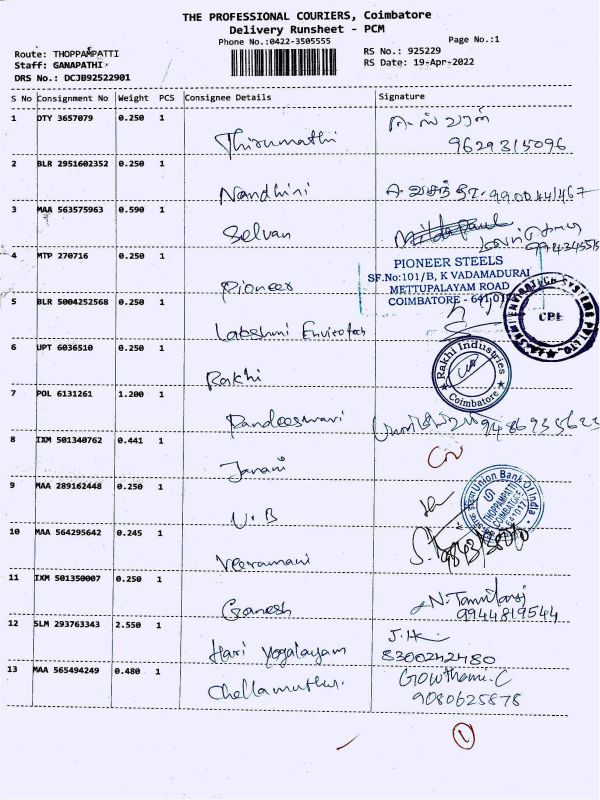 THE PROFESSIONAL COURIERS, Coimbatore
Delivery Runsheet - PCM
Phone No.:0422-3505555
Page No.:1
Route: THOPPAMPATTI
RS No.: 925229
Staff: GANAPATHI
RS Date: 19-Apr-2022
DRS No.: DCJB92522901
S No Consignment No Weight PCS Consignee Details Signature
1 DTY 3657079 0.250 1
Thirumathi 9629315096
2 BLR 2951602352 0.250 1
Nandhini
3 MAA 563575963 0.590 1
Selvan
4 MTP 270716 0.250 1
PIONEER STEELS
SF.No:101/B, K VADAMADURAI
METTUPALAYAM ROAD
COIMBATORE - 641 017
Pioneer
5 BLR 5004252568 0.250 1
CBE
Lakshmi Envirotech
6 UPT 6036510 0.250 1
Rakhi Industries
Coimbatore
Rakhi
7 POL 6131261 1.200 1
Pandeeswari 9486935623
8 IXM 501340762 0.441 1
Janani
9 MAA 289162448 0.250 1
Union Bank Of India
THOPPAMPATTI
COIMBATORE
U.B
10 MAA 564295642 0.245 1
Veeramani
11 IXM 501350007 0.250 1
Ganesh N. Tamilarasi
9944819544
12 SLM 293763343 2.550 1
Hari Yogalayam
8300242480
13 MAA 565494249 0.480 1
Chellamuthu. Gowthami.C
9080625878
1